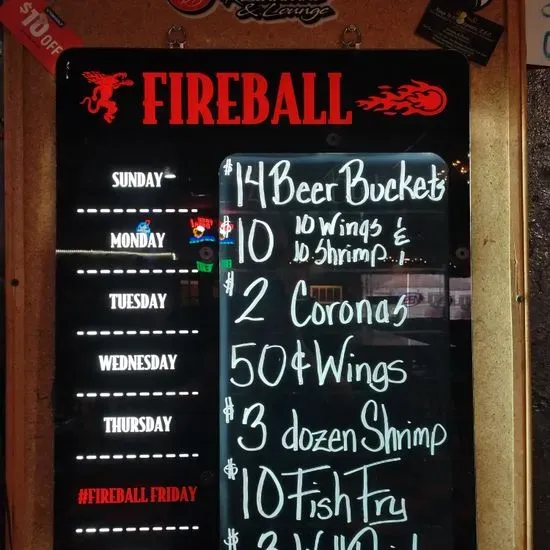 $10 OFF
& Lounge
FIREBALL
SUNDAY $14 Beer Buckets
MONDAY $10 10 Wings &
10 Shrimp
TUESDAY $2 Coronas
WEDNESDAY 50¢ Wings
THURSDAY $3 dozen Shrimp
#FIREBALL FRIDAY $10 Fish Fry
$3 Well